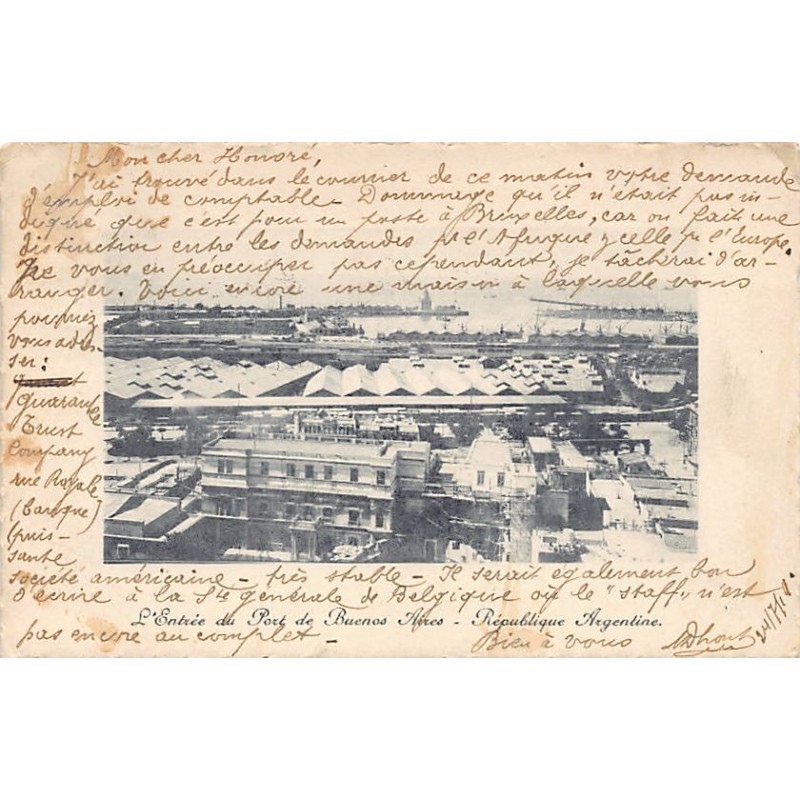 Mon cher Honoré,
J'ai trouvé dans le courrier de ce matin votre demande
d'emploi de comptable. Dommage qu'il n'était pas in-
diqué que c'est pour un poste à Bruxelles, car on fait une
distinction entre les demandes pr l'Afrique & celle pr l'Europe.
Ne vous en préoccuper pas cependant, je tâcherai d'ar-
ranger. Voici encore une maison à laquelle vous
pourriez
vous adres-
ser:
Guarantee
Trust
Company
rue Royale
(Banque)
(puis-
sante
société américaine - très stable - Il serait également bon
d'écrire à la Sté générale de Belgique où le "staff" n'est
L'Entrée du Port de Buenos Aires - République Argentine.
pas encore au complet - Bien à vous
24/7/10